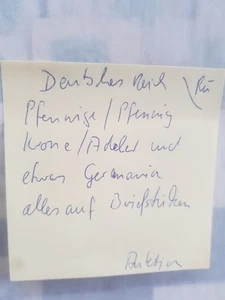 Deutsches Reich
Pfennige / Pfennig
Krone / Adler und
etwas Germania
alles auf Briefstücken
Auktion